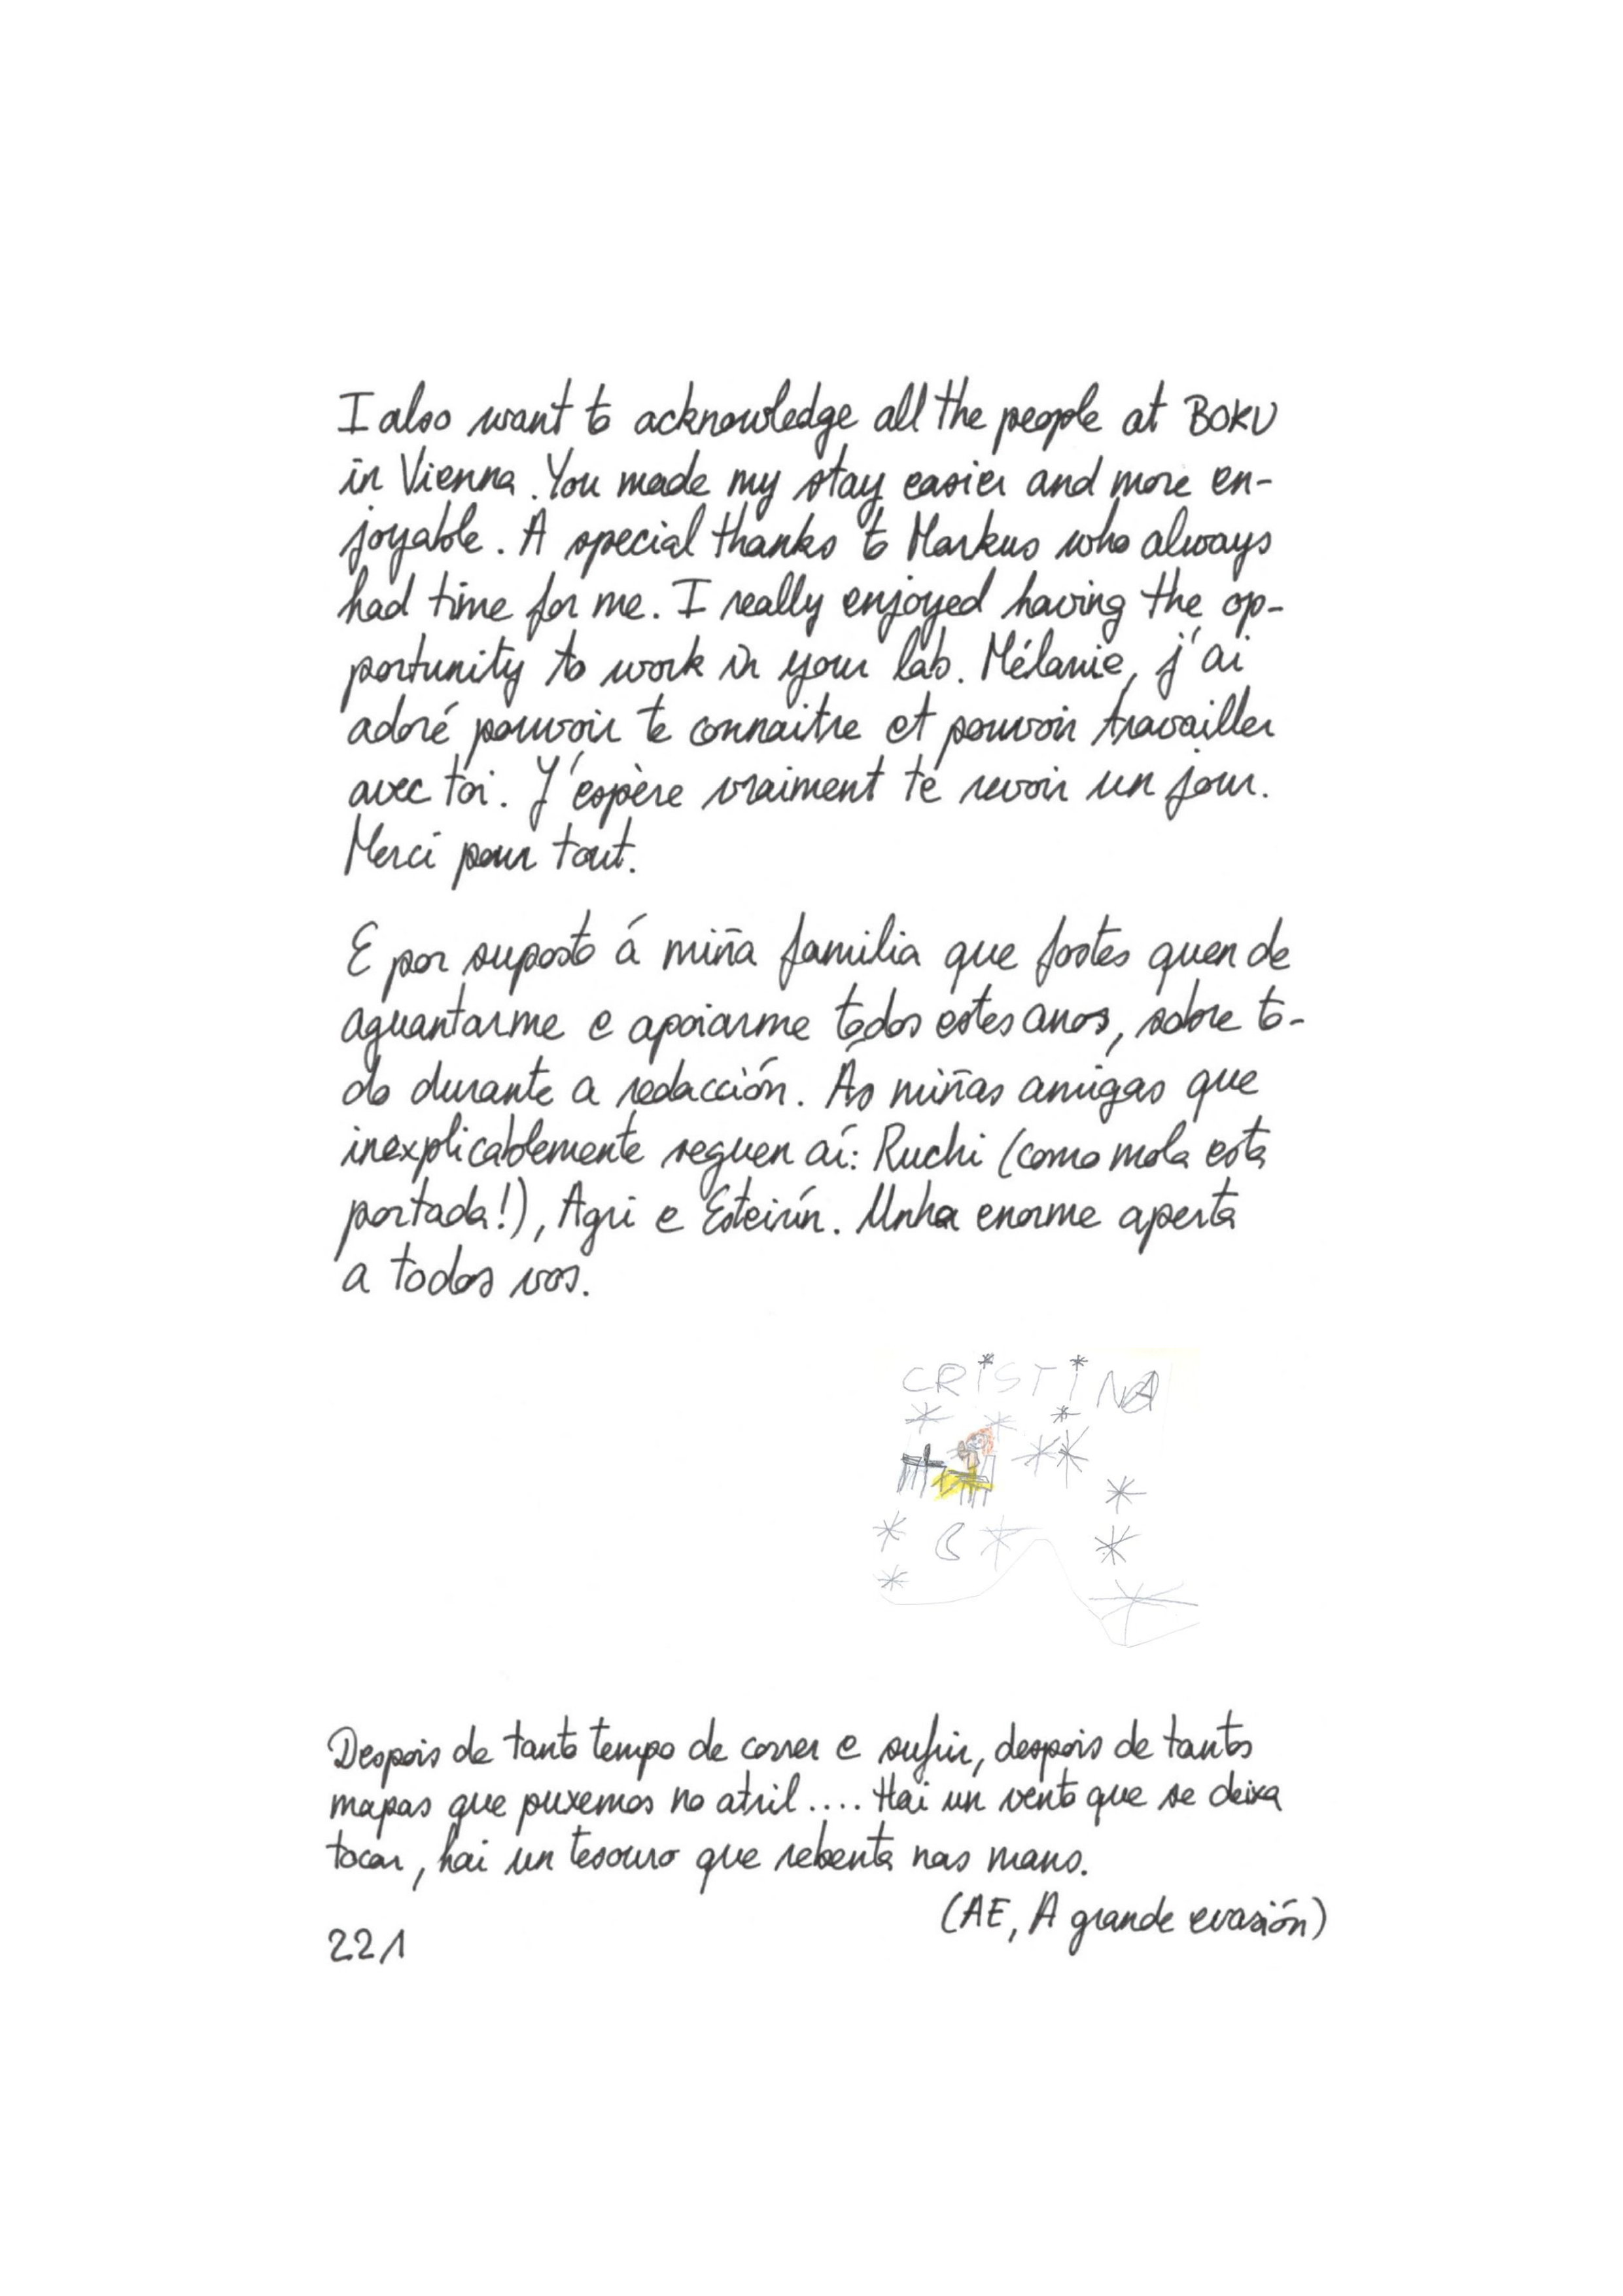 I also want to acknowledge all the people at BOKU
in Vienna. You made my stay easier and more en-
joyable. A special thanks to Markus who always
had time for me. I really enjoyed having the op-
portunity to work in your lab. Mélanie, j'ai
adoré pouvoir te connaitre et pouvoir travailler
avec toi. J'espère vraiment te revoir un jour.
Merci pour tout.
E por suposto á miña familia que fostes quen de
aguantarme e apoiarme todos estes anos, sobre to-
do durante a redacción. Ás miñas amigas que
inexplicablemente seguen aí: Ruchi (como mola esta
portada!), Agri e Esteirín. Unha enorme aperta
a todos vos.
CRiSTiNA
Despois de tanto tempo de correr e sufrir, despois de tantos
mapas que puxemos no atril.... Hai un vento que se deixa
tocar, hai un tesouro que rebenta nas mans.
(AE, A grande evasión)
221